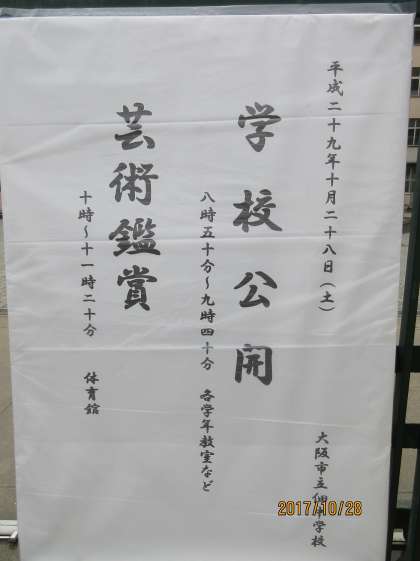 平成二十九年十月二十八日（土）
大阪市立佃中学校
学校公開
八時五十分～九時四十分 各学年教室など
芸術鑑賞
十時～十一時二十分 体育館
2017/10/28